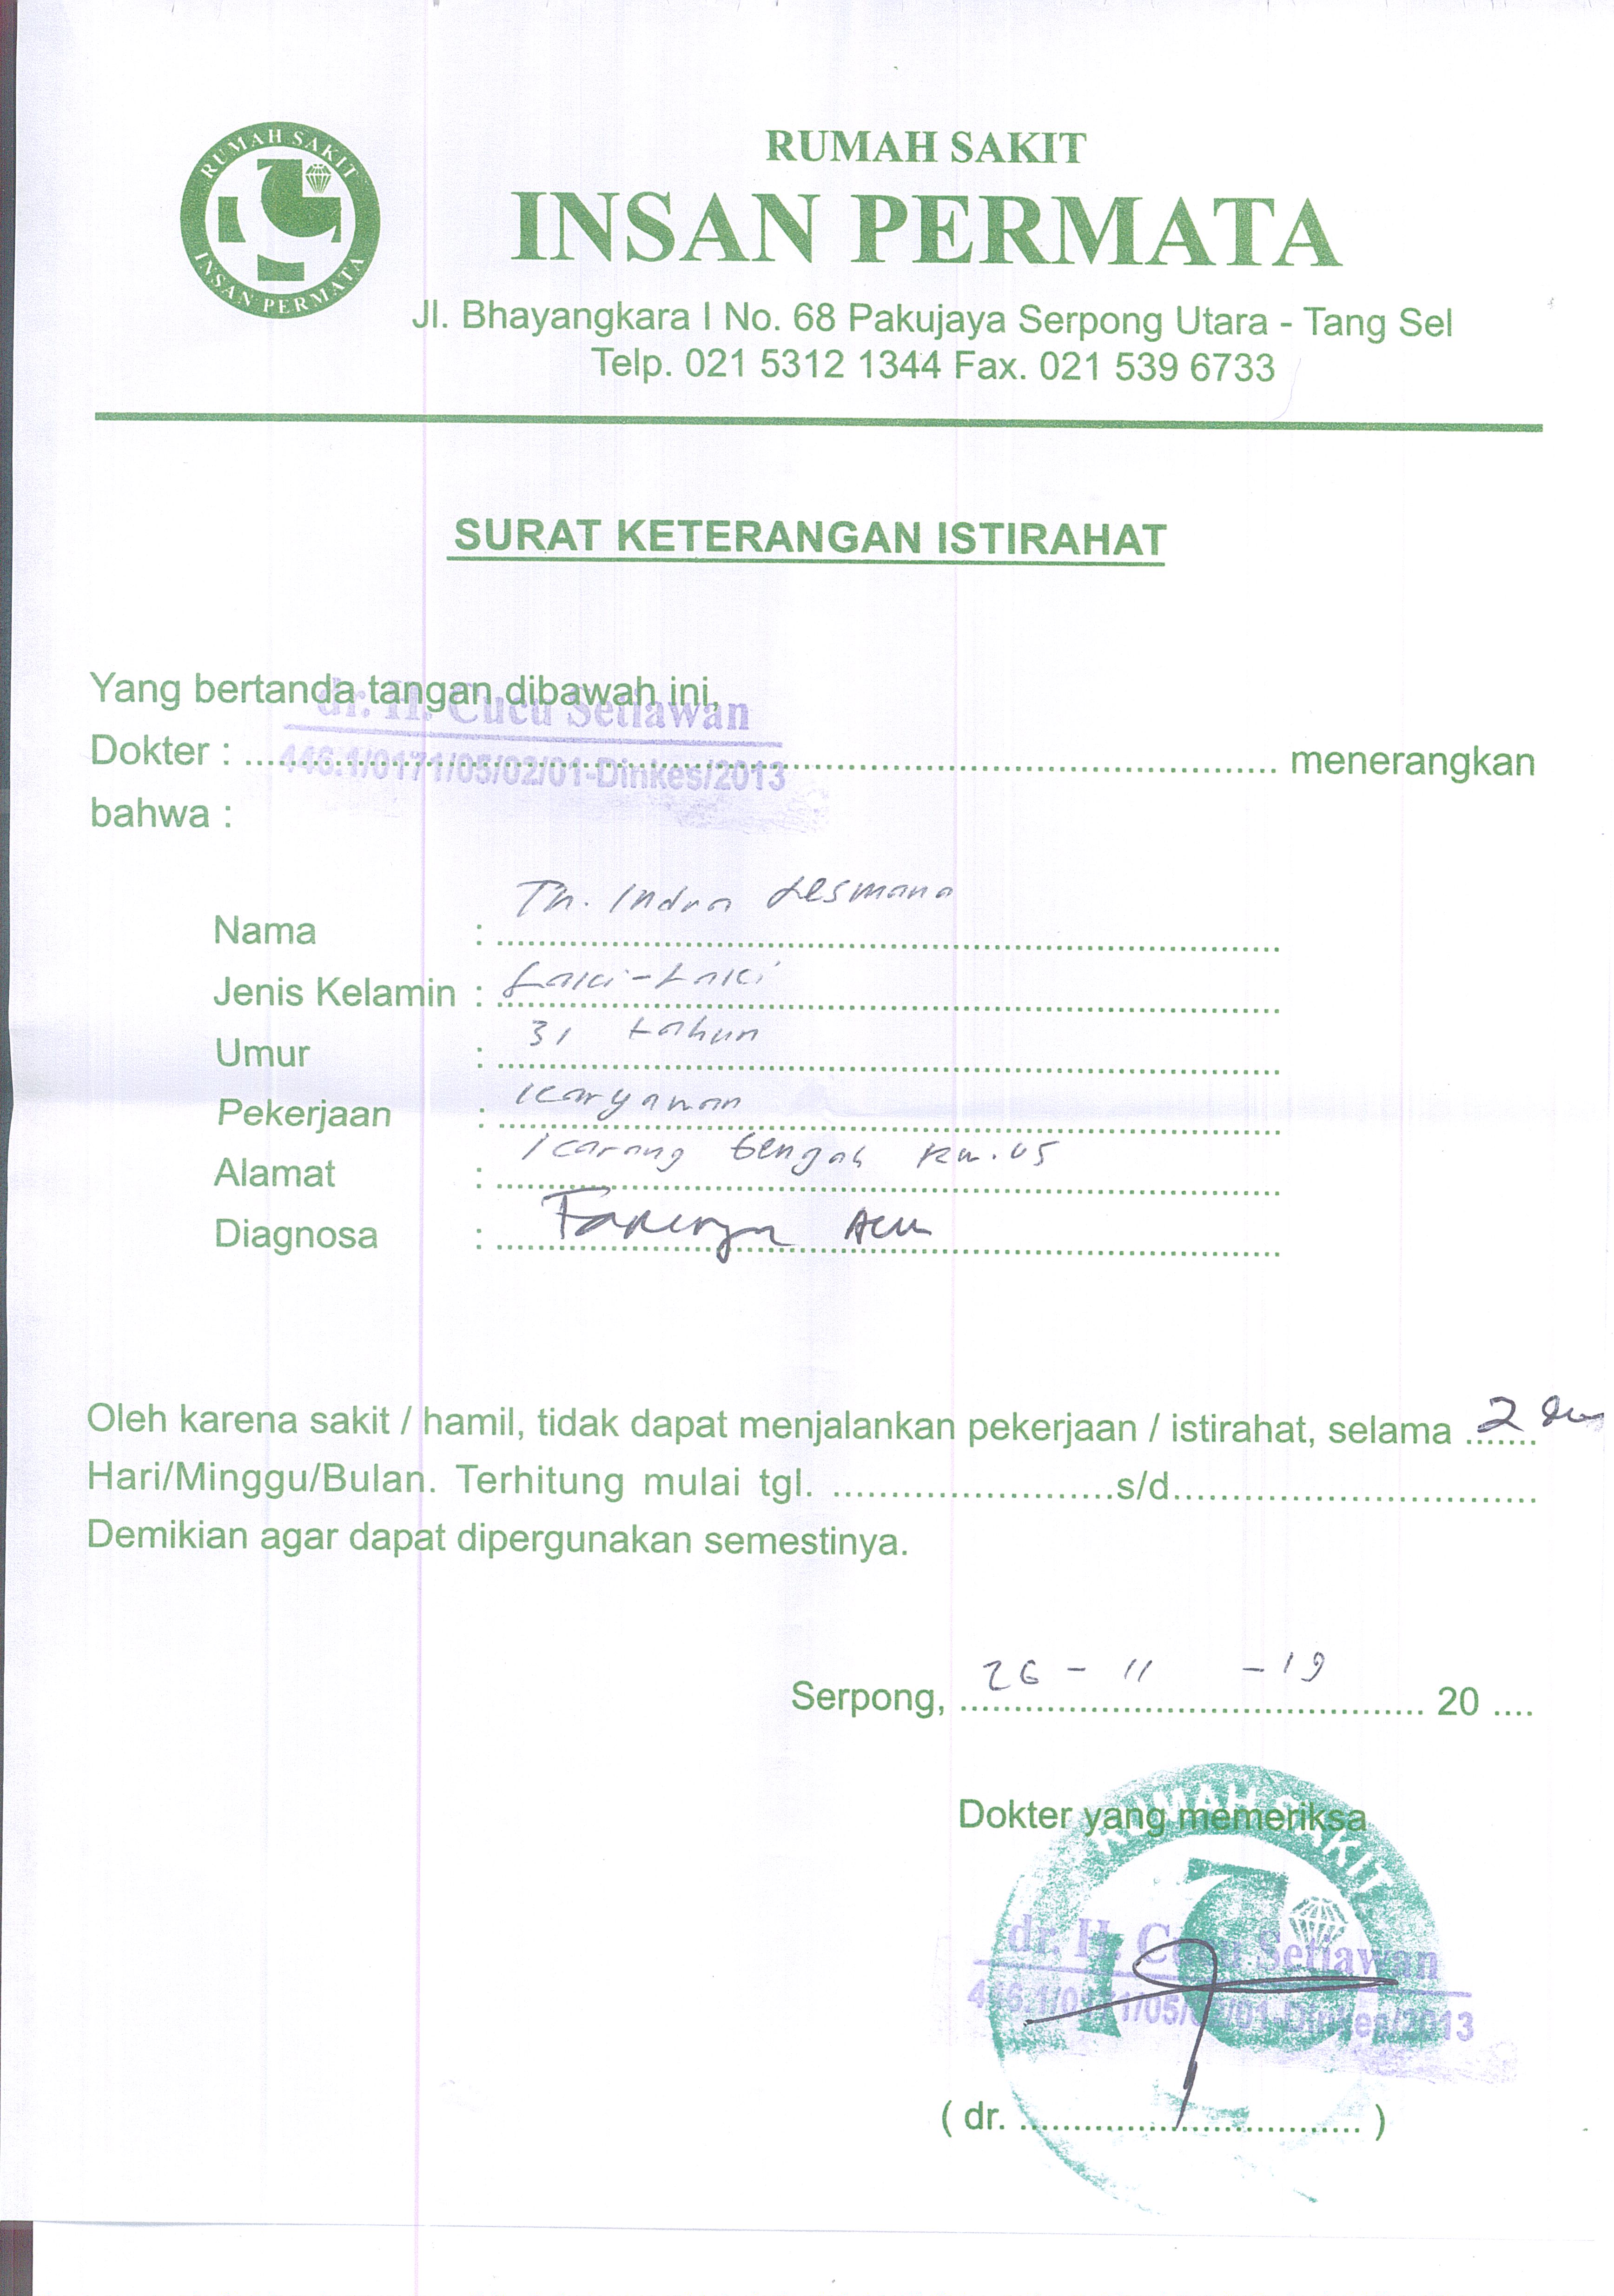 RUMAH SAKIT
INSAN PERMATA
RUMAH SAKIT
INSAN PERMATA
Jl. Bhayangkara I No. 68 Pakujaya Serpong Utara - Tang Sel
Telp. 021 5312 1344 Fax. 021 539 6733
SURAT KETERANGAN ISTIRAHAT
Yang bertanda tangan dibawah ini,
dr. H. Cucu Setiawan
Dokter : ........................................ menerangkan
446.1/0171/05/02/01-Dinkes/2013
bahwa :
Nama : Tn. Indra Lesmana
Jenis Kelamin : Laki-Laki
Umur : 31 tahun
Pekerjaan : Karyawan
Alamat : Karang tengah Rw.05
Diagnosa :
Oleh karena sakit / hamil, tidak dapat menjalankan pekerjaan / istirahat, selama 2
Hari/Minggu/Bulan. Terhitung mulai tgl. ........................s/d................................
Demikian agar dapat dipergunakan semestinya.
Serpong, 26 - 11 - 19 20 ....
Dokter yang memeriksa
RUMAH SAKIT
dr. H. Cucu Setiawan
446.1/0171/05/02/01-Dinkes/2013
( dr. ................................ )